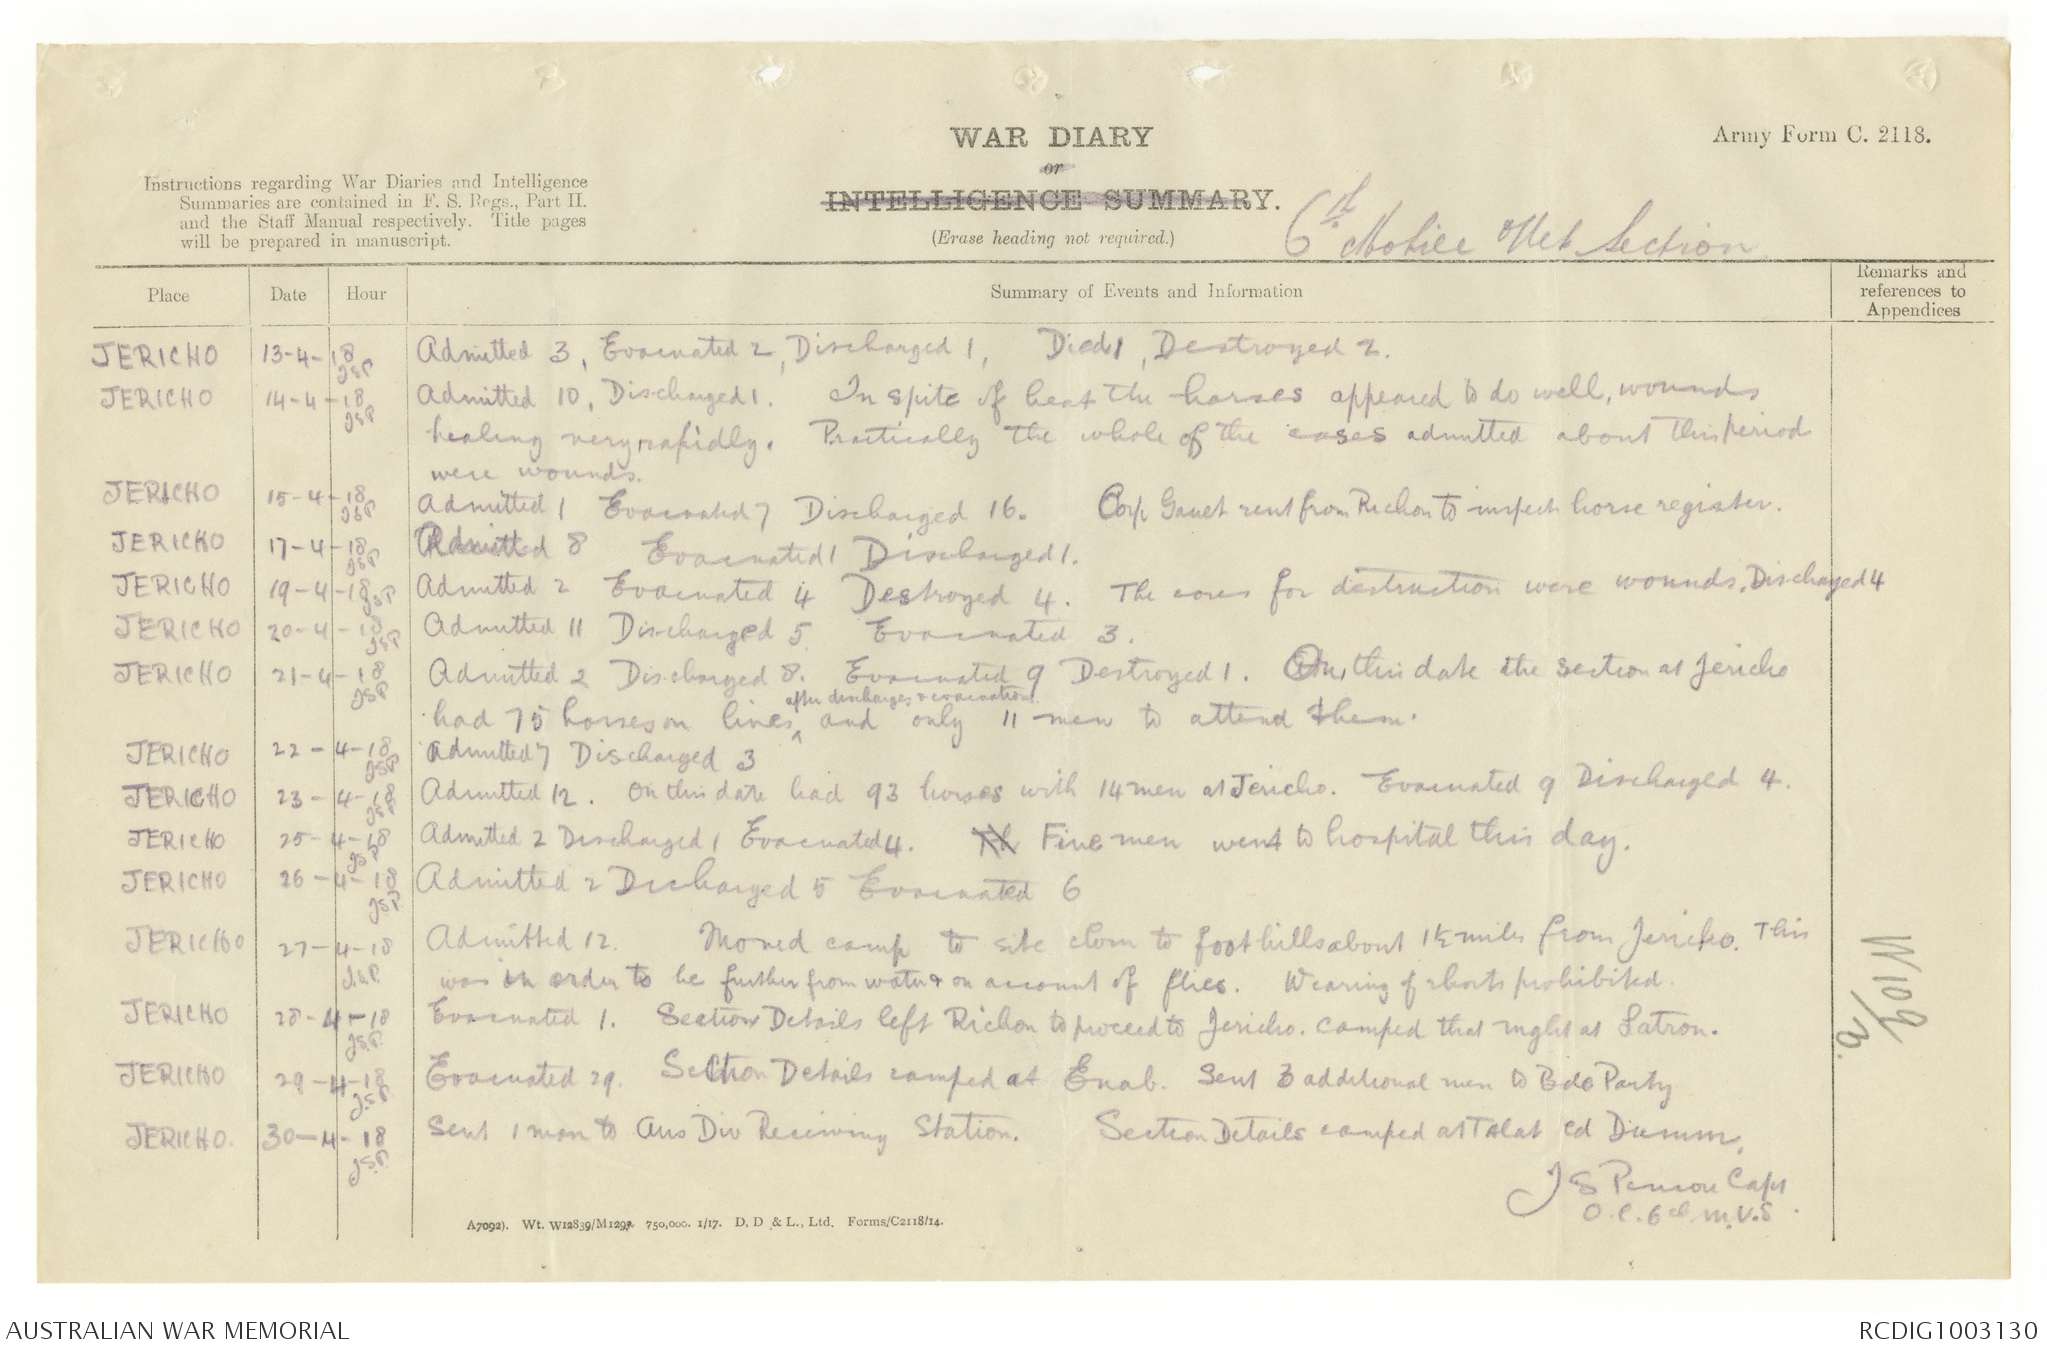 WAR DIARY
or
INTELLIGENCE SUMMARY.
(Erase heading not required.)
Army Form C. 2118.
Instructions regarding War Diaries and Intelligence
Summaries are contained in F. S. Regs., Part II.
and the Staff Manual respectively. Title pages
will be prepared in manuscript.
6th Mobile Vet Section
Place Date Hour Summary of Events and Information Remarks and references to Appendices
JERICHO 13-4-18 JSP Admitted 3, Evacuated 2, Discharged 1, Died 1, Destroyed 2.
JERICHO 14-4-18 JSP Admitted 10, Discharged 1. In spite of heat the horses appeared to do well, wounds
healing very rapidly. Practically the whole of the cases admitted about this period
were wounds.
JERICHO 15-4-18 JSP Admitted 1 Evacuated 7 Discharged 16. Corp sent from Richon to inspect horse register.
JERICHO 17-4-18 JSP Admitted 8 Evacuated 1 Discharged 1.
JERICHO 19-4-18 JSP Admitted 2 Evacuated 4 Destroyed 4. The cases for destruction were wounds. Discharged 4
JERICHO 20-4-18 JSP Admitted 11 Discharged 5 Evacuated 3.
JERICHO 21-4-18 JSP Admitted 2 Discharged 8. Evacuated 9 Destroyed 1. On this date the section at Jericho
had 75 horses on lines, after discharges & evacuations and only 11 men to attend them.
JERICHO 22-4-18 JSP Admitted 7 Discharged 3
JERICHO 23-4-18 JSP Admitted 12. On this date had 93 horses with 14 men at Jericho. Evacuated 9 Discharged 4.
JERICHO 25-4-18 JSP Admitted 2 Discharged 1 Evacuated 4. Th Five men went to hospital this day.
JERICHO 26-4-18 JSP Admitted 2 Discharged 5 Evacuated 6
JERICHO 27-4-18 J.S.P. Admitted 12. Moved camp to site close to foothills about 1½ miles from Jericho. This
was in order to be further from water & on account of flies. Wearing of shorts prohibited.
JERICHO 28-4-18 J.S.P. Evacuated 1. Section Details left Richon to proceed to Jericho. Camped that night at Latron.
JERICHO 29-4-18 J.S.P. Evacuated 29. Section Details camped at Enab. Sent 3 additional men to Bde Party
JERICHO. 30-4-18 J.S.P. Sent 1 man to Aus Div Receiving Station. Section Details camped at Talat ed Dumm.
J S Penson Capt
O.C. 6th M.V.S.
A7092). Wt. W12839/M1293. 750,000. 1/17. D. D & L., Ltd. Forms/C2118/14.
AUSTRALIAN WAR MEMORIAL
RCDIG1003130